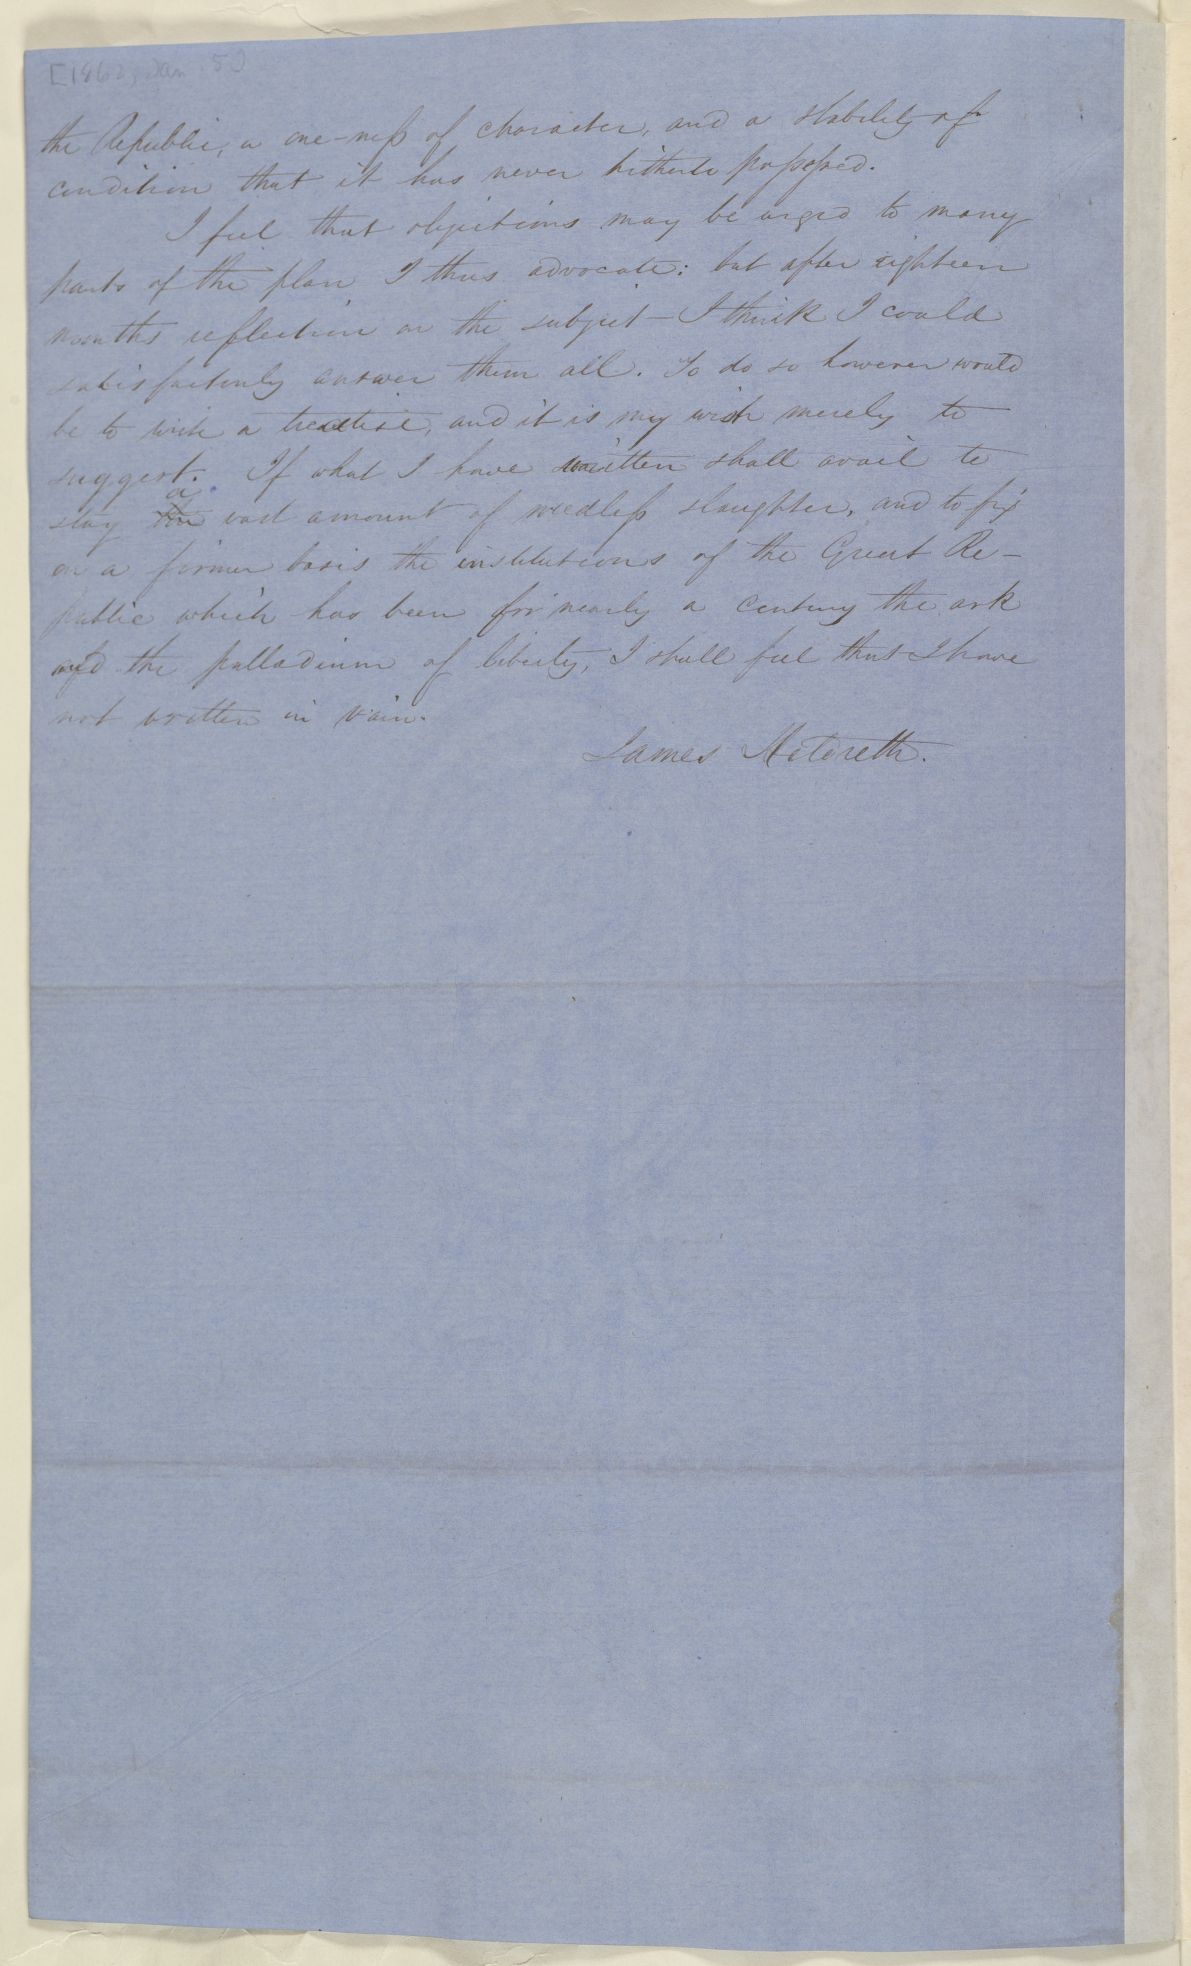 [1862, Jan. 5]
the Republic, a one-ness of character, and a stability of
condition that it has never hitherto possessed.
I feel that objections may be urged to many
parts of the plan I thus advocate: but after eighteen
months reflection on the subject — I think I could
satisfactorily answer them all. To do so however would
be to write a treatise, and it is my wish merely to
suggest. If what I have written shall avail to
a
stay the vast amount of needless slaughter, and to fix
on a firmer basis the institutions of the Great Re-
public which has been for nearly a century the ark
and the palladium of liberty, I shall feel that I have
not written in vain.
James